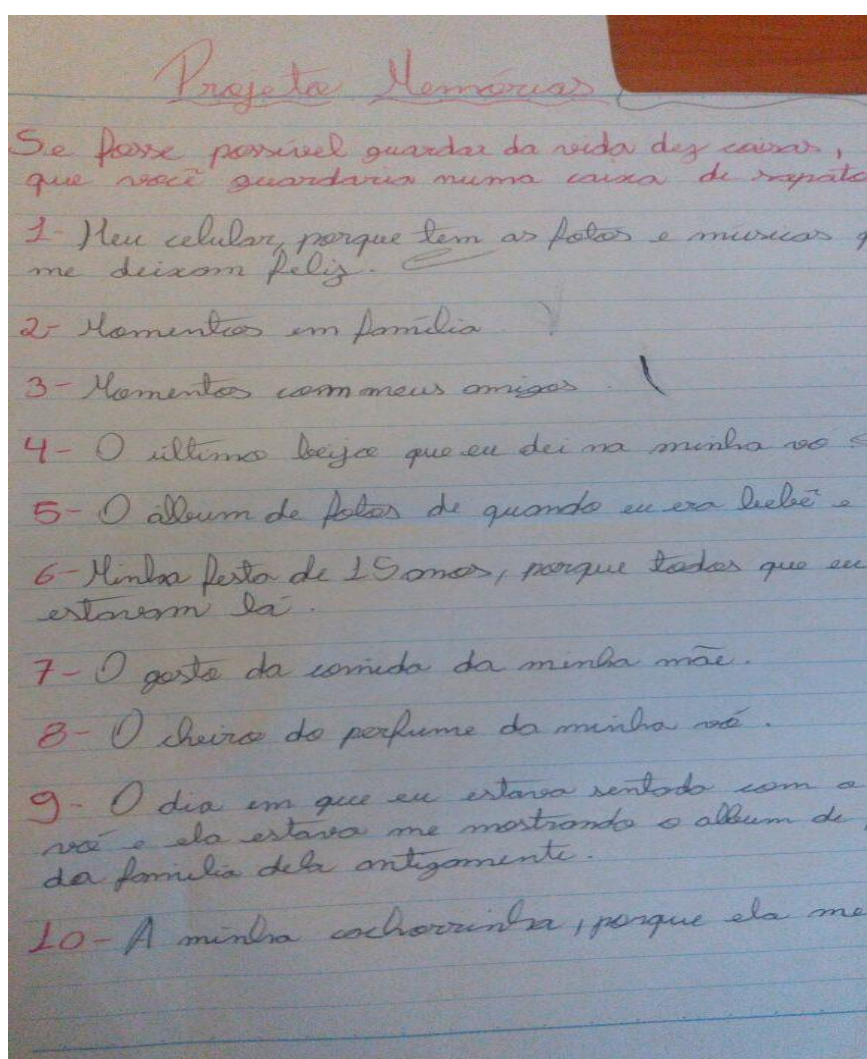 Projeto Memórias
Se fosse possível guardar da vida dez coisas,
que você guardaria numa caixa de sapato
1- Meu celular, porque tem as fotos e musicas q
me deixam feliz.
2- Momentos em família
3- Momentos com meus amigos.
4- O último beijo que eu dei na minha vó
5- O álbum de fotos de quando eu era bebê e
6- Minha festa de 15 anos, porque todos que eu
estavam lá.
7- O gosto da comida da minha mãe.
8- O cheiro do perfume da minha vó.
9- O dia em que eu estava sentada com a
vó e ela estava me mostrando o album de
da familia dela antigamente.
10- A minha cachorrinha, porque ela me